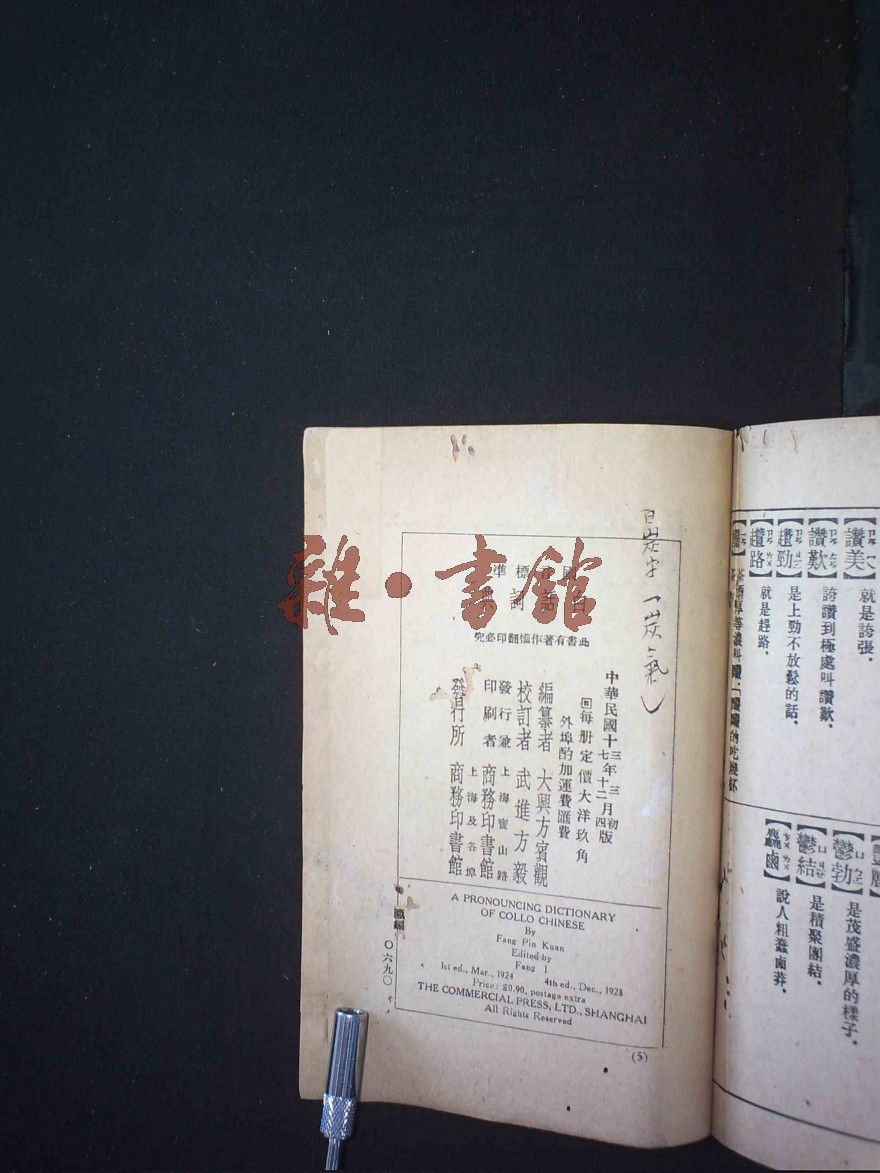 讚美
就是誇張.
讚歎
誇讚到極處叫讚歎.
趲勁
是上勁不放鬆的話.
趲路
就是趕路.
鬱勃
是茂盛濃厚的樣子.
鬱結
是積聚團結.
麤鹵
說人粗蠢鹵莽.
雜·書館
此書有著作權翻印必究
中華民國十三年三月初版
十七年十二月四版
每册定價大洋玖角
外埠酌加運費匯費
編纂者 大興方賓觀
校訂者 武進方毅
發行兼印刷者 上海寶山路 商務印書館
發行所 上海及各埠 商務印書館
〇六九〇
A PRONOUNCING DICTIONARY
OF COLLO CHINESE
By
Fang Pin Kuan
Edited by
Fang I
1st ed., Mar., 1924 4th ed., Dec., 1928
Price: $0.90, postage extra
THE COMMERCIAL PRESS, LTD., SHANGHAI
All Rights Reserved
(5)